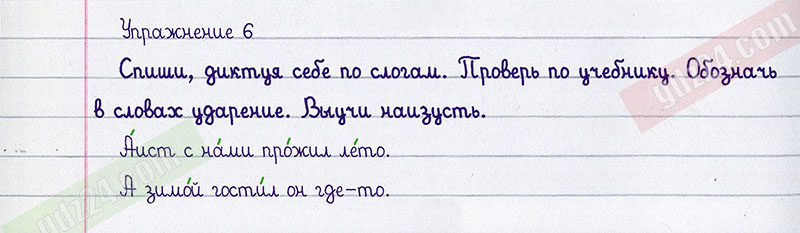 Упражнение 6
Спиши, диктуя себе по слогам. Проверь по учебнику. Обозначь
в словах ударение. Выучи наизусть.
А́ист с на́ми про́жил ле́то.
А зимо́й гости́л он где-то.
gdz24.com
gdz24.com